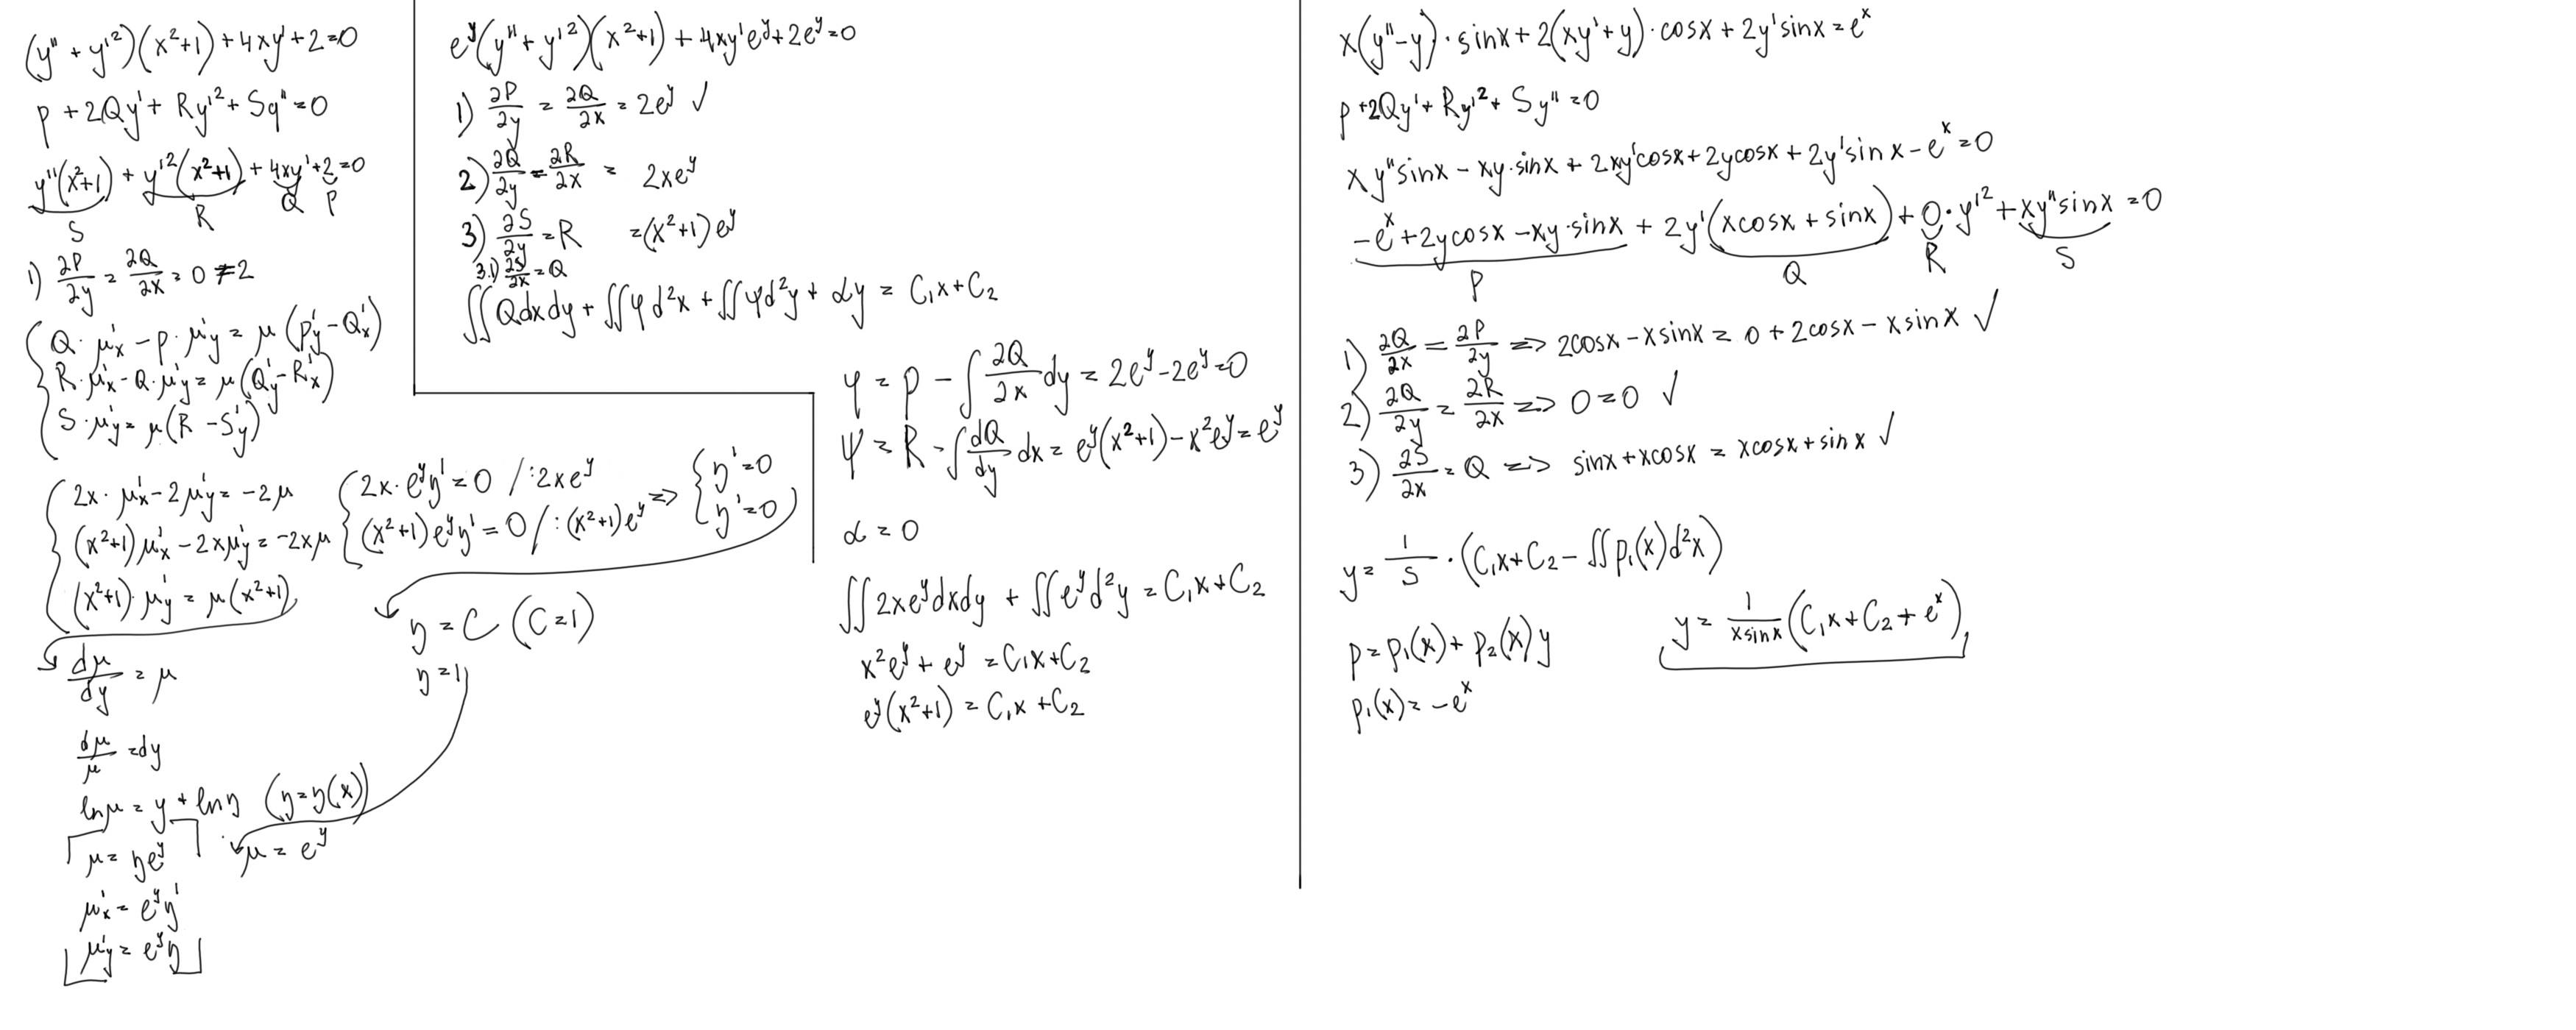 (y'' + y'²)(x²+1) + 4xy' + 2 = 0
P + 2Qy' + Ry'² + Sy'' = 0
y''(x²+1) + y'²(x²+1) + 4xy' + 2 = 0
S R Q P
1) ∂P/∂y = ∂Q/∂x = 0 ≠ 2
{ Q·μ'x − P·μ'y = μ(P'y − Q'x)
R·μ'x − Q·μ'y = μ(Q'y − R'x)
S·μ'y = μ(R − S'y)
{ 2x·μ'x − 2μ'y = −2μ
(x²+1)μ'x − 2xμ'y = −2xμ
(x²+1)·μ'y = μ(x²+1)
{ 2x·e^y η' = 0 /:2xe^y
(x²+1)e^y η' = 0 /:(x²+1)e^y => { η' = 0
η' = 0
η = C (C=1)
η = 1
dμ/dy = μ
dμ/μ = dy
ln μ = y + ln η (η = η(x))
μ = ηe^y
μ = e^y
μ'x = e^y η'
μ'y = e^y η
e^y(y'' + y'²)(x²+1) + 4xy'e^y + 2e^y = 0
1) ∂P/∂y = ∂Q/∂x = 2e^y ✓
2) ∂Q/∂y = ∂R/∂x = 2xe^y
3) ∂S/∂y = R = (x²+1)e^y
3.1) ∂S/∂x = Q
∬Qdxdy + ∬φd²x + ∬ψd²y + αy = C₁x + C₂
φ = P − ∫ ∂Q/∂x dy = 2e^y − 2e^y = 0
ψ = R − ∫ dQ/dy dx = e^y(x²+1) − x²e^y = e^y
α = 0
∬2xe^y dxdy + ∬e^y d²y = C₁x + C₂
x²e^y + e^y = C₁x + C₂
e^y(x²+1) = C₁x + C₂
x(y''−y)·sinx + 2(xy'+y)·cosx + 2y'sinx = e^x
P + 2Qy' + Ry'² + Sy'' = 0
xy''sinx − xy·sinx + 2xy'cosx + 2ycosx + 2y'sinx − e^x = 0
−e^x + 2ycosx − xy·sinx + 2y'(xcosx + sinx) + 0·y'² + xy''sinx = 0
P Q R S
1) ∂Q/∂x = ∂P/∂y => 2cosx − xsinx = 0 + 2cosx − xsinx ✓
2) ∂Q/∂y = ∂R/∂x => 0 = 0 ✓
3) ∂S/∂x = Q => sinx + xcosx = xcosx + sinx ✓
y = 1/S · (C₁x + C₂ − ∬p₁(x)d²x)
P = p₁(x) + p₂(x)y
p₁(x) = −e^x
y = 1/(xsinx) (C₁x + C₂ + e^x)